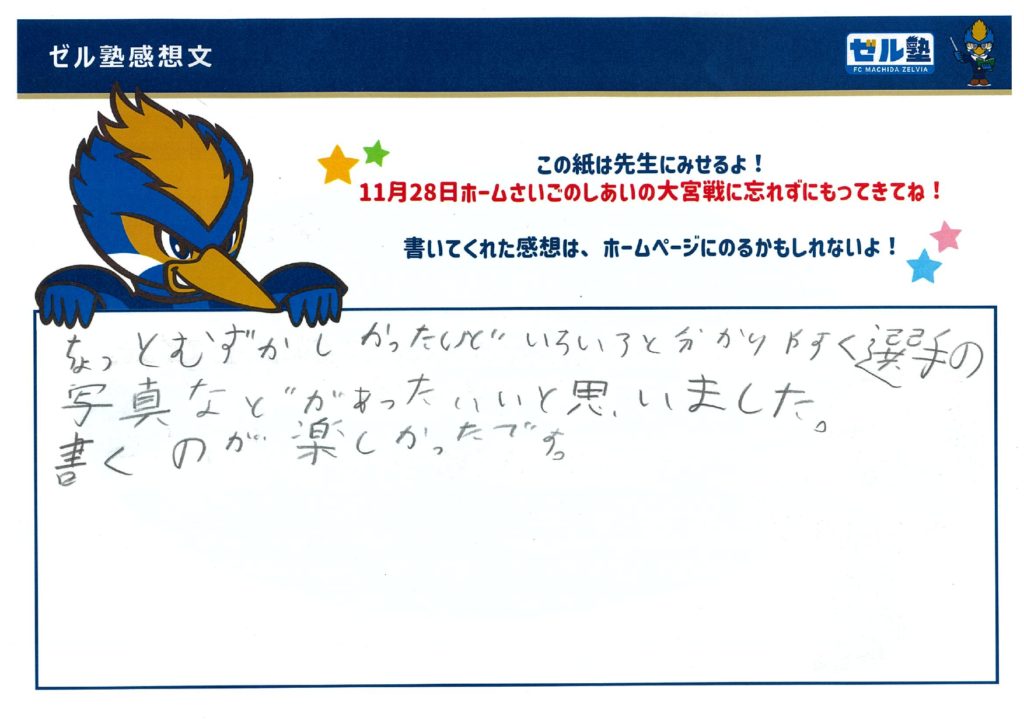 ゼル塾感想文
ゼル塾
FC MACHIDA ZELVIA
この紙は先生にみせるよ！
11月28日ホームさいごのしあいの大宮戦に忘れずにもってきてね！
書いてくれた感想は、ホームページにのるかもしれないよ！
ちょっとむずかしかったけどいろいろと分かりやすく選手の
写真などがあったいいと思いました。
書くのが楽しかったです。